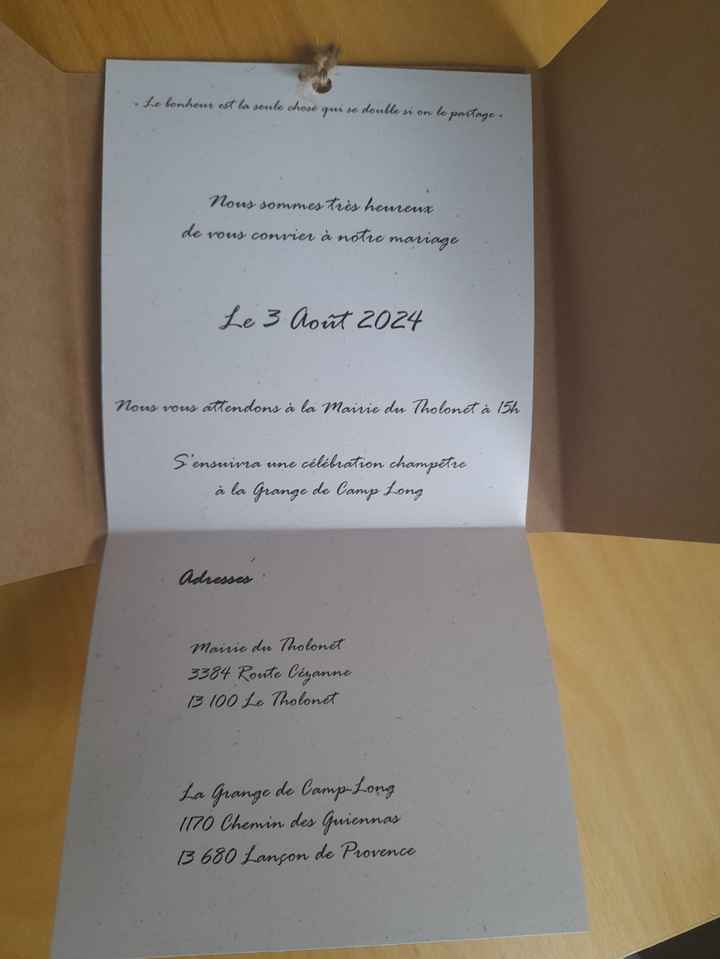 « Le bonheur est la seule chose qui se double si on le partage »
Nous sommes très heureux
de vous convier à notre mariage
Le 3 Août 2024
Nous vous attendons à la Mairie du Tholonet à 15h
S'ensuivra une célébration champêtre
à la Grange de Camp Long
Adresses
Mairie du Tholonet
3384 Route Cézanne
13 100 Le Tholonet
La Grange de Camp-Long
1170 Chemin des Guiennas
13 680 Lançon de Provence